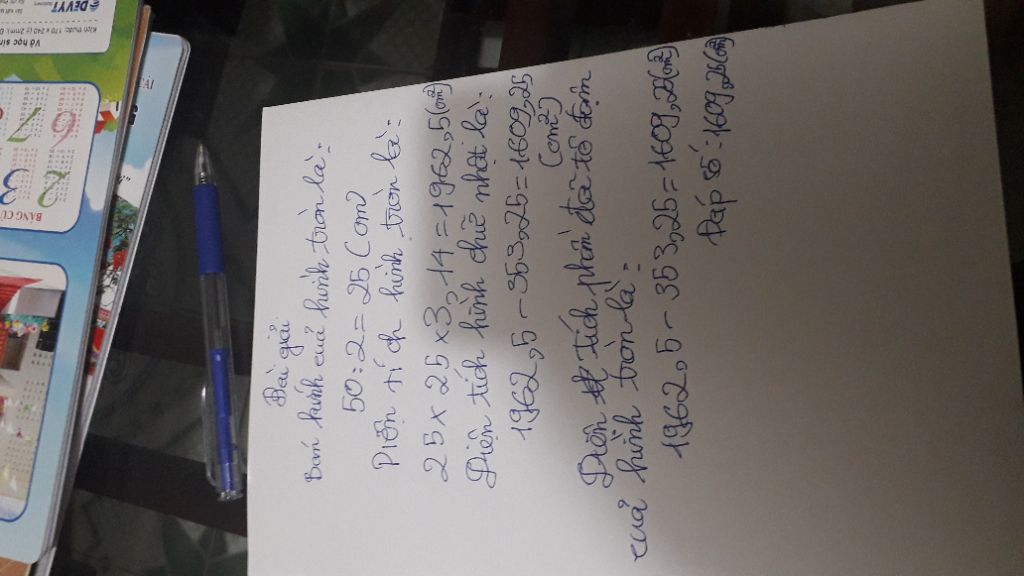 Bài giải
Bán kính của hình tròn là:
50:2=25(cm)
Diện tích hình tròn là:
25×25×3,14=1962,5(cm²)
Diện tích hình chữ nhật là:
1962,5-353,25=1609,25
(cm²)
Diện tích phần đã tô đậm
của hình tròn là:
1962,5-353,25=1609,25(cm²)
Đáp số:1609,25(cm²)
DEVYT
Kích thước: 170 x 240 (± 2mm).
Vở học sin
BẢNG CỬ
2 3
6 7